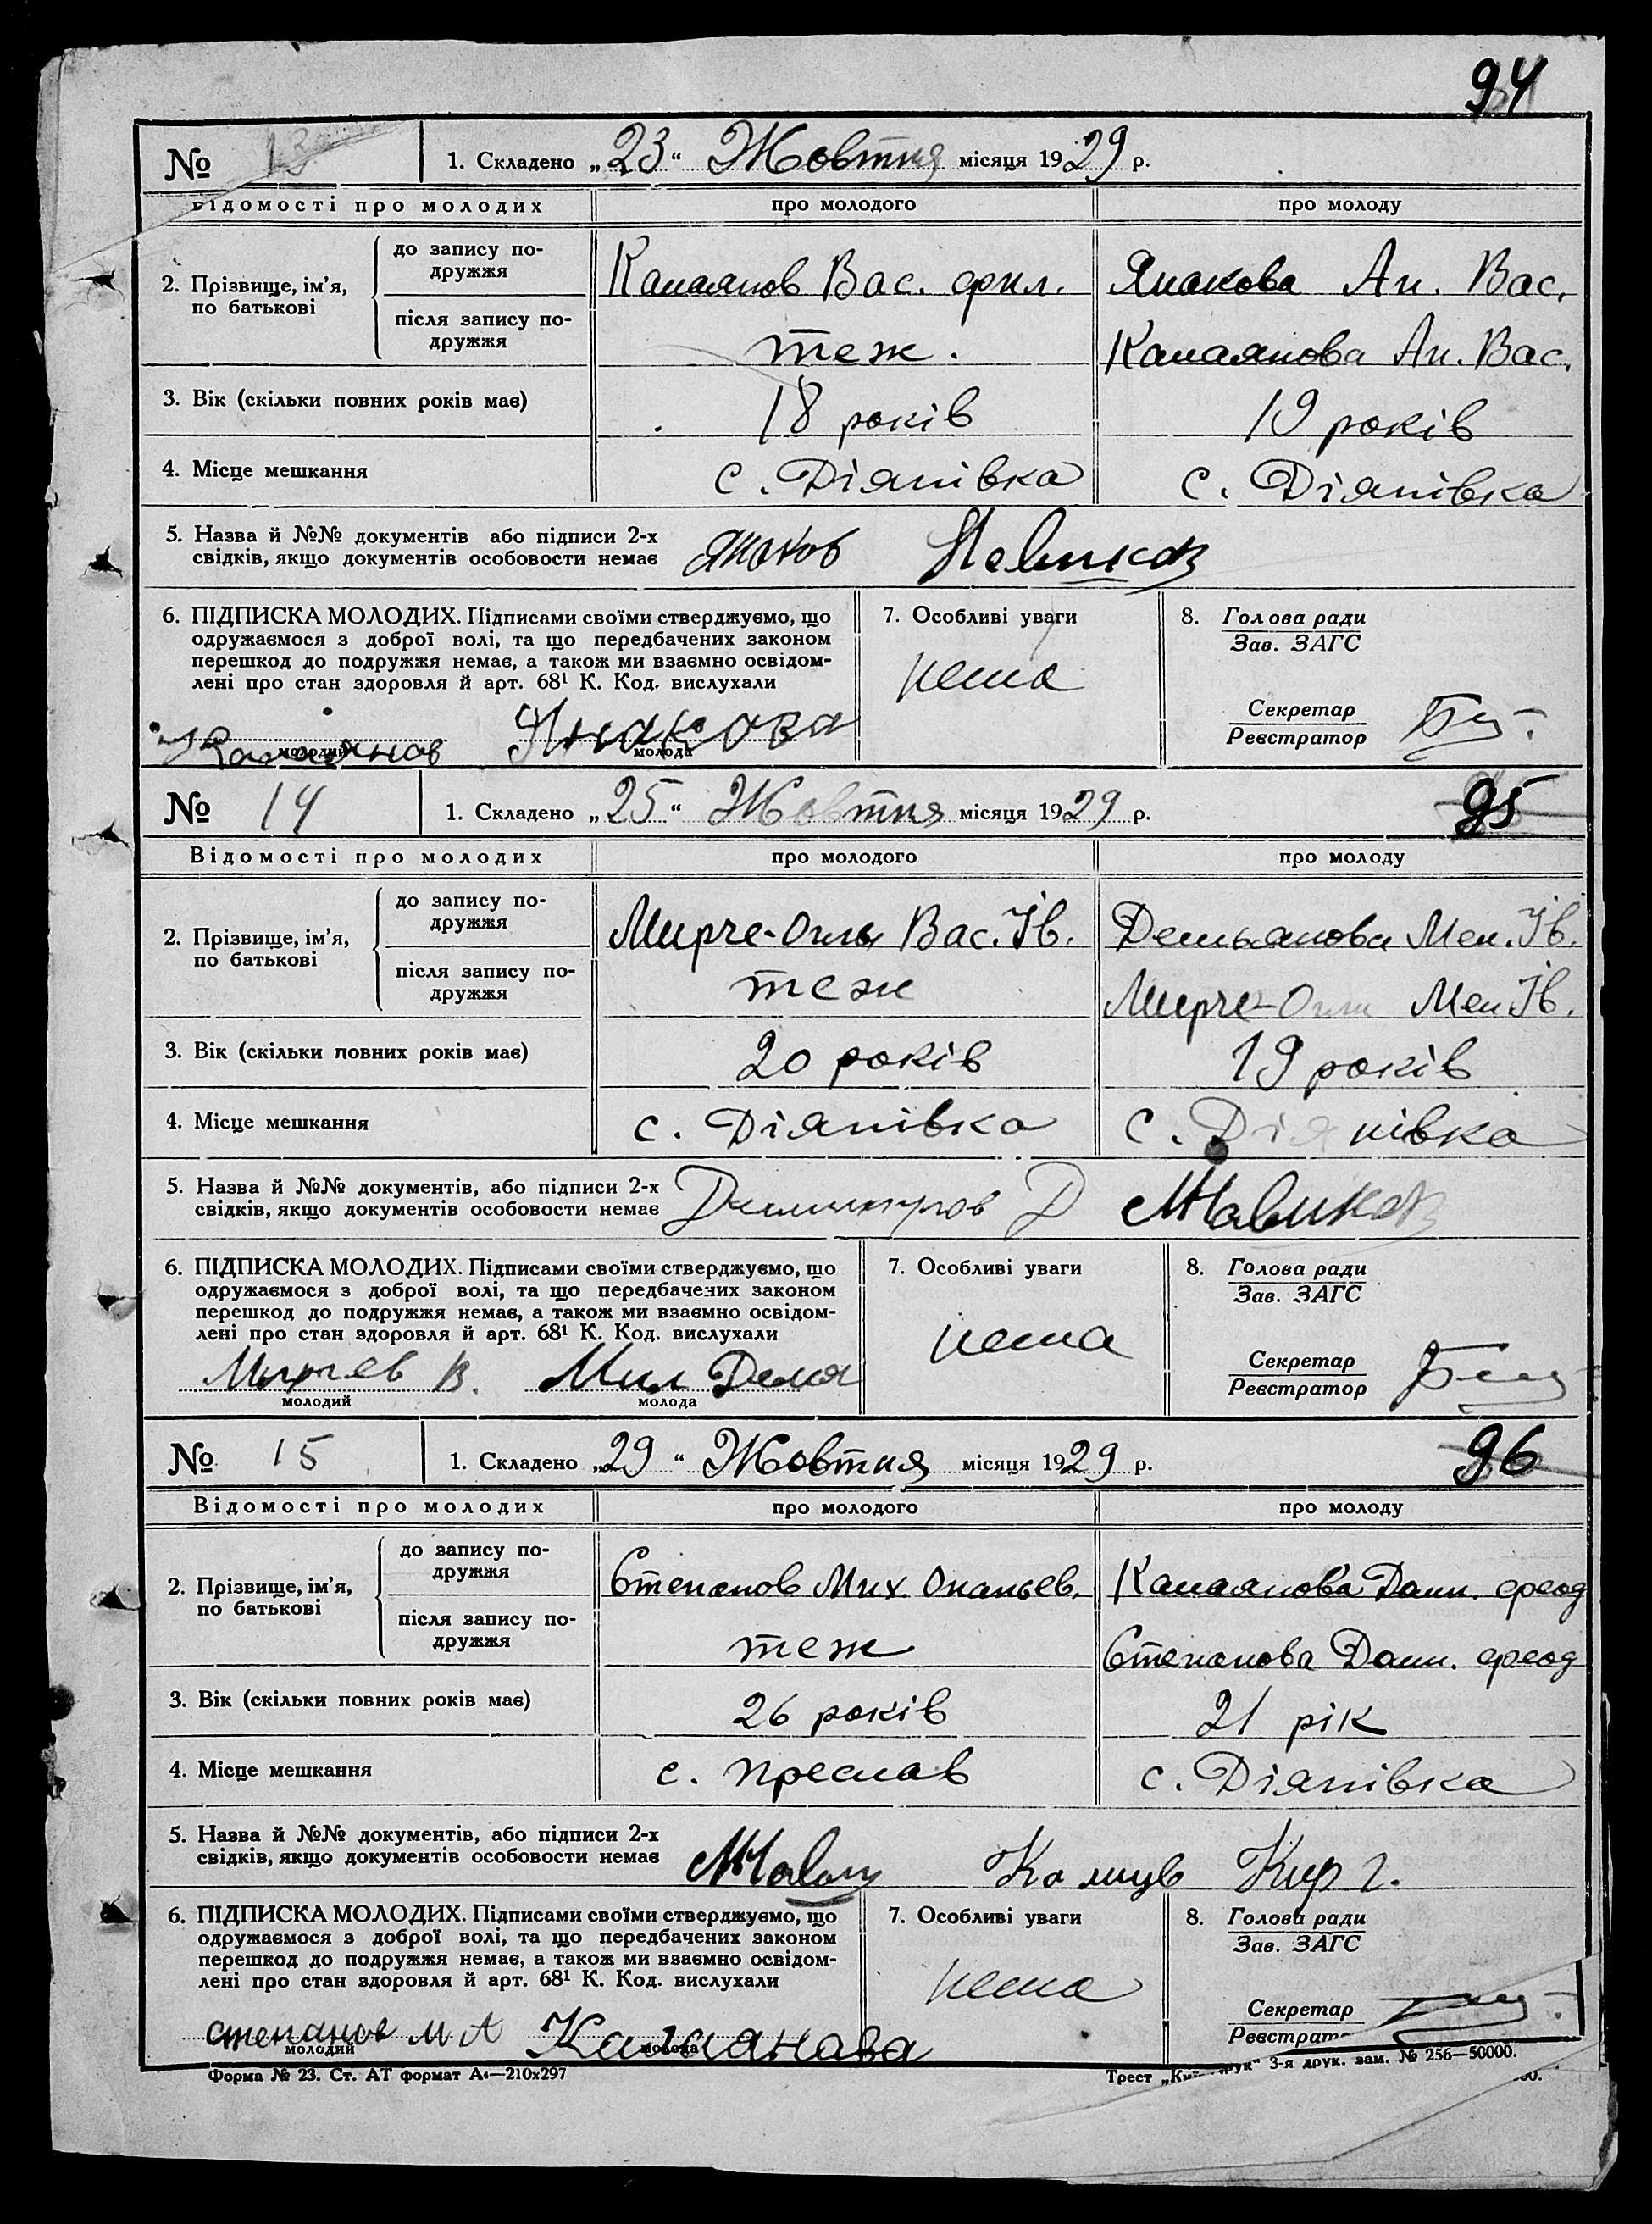 94
№ 13 1. Складено „23“ Жовтня місяця 1929 р.
Відомості про молодих про молодого про молоду
2. Прізвище, ім’я, по батькові
до запису подружжя Калаянов Вас. Філ. Янакова Ан. Вас.
після запису подружжя теж. Калаянова Ан. Вас.
3. Вік (скільки повних років має) 18 років 19 років
4. Місце мешкання с. Діянівка с. Діянівка
5. Назва й №№ документів або підписи 2-х
свідків, якщо документів особовости немає Янаков
6. ПІДПИСКА МОЛОДИХ. Підписами своїми стверджуємо, що
одружаємося з доброї волі, та що передбачених законом
перешкод до подружжя немає, а також ми взаємно освідом-
лені про стан здоров’я й арт. 68¹ К. Код. вислухали
Калаянов Янакова
молодий молода
7. Особливі уваги
нема
8. Голова ради
Зав. ЗАГС
Секретар
Реєстратор
№ 14 1. Складено „25“ Жовтня місяця 1929 р. 95
Відомості про молодих про молодого про молоду
2. Прізвище, ім’я, по батькові
до запису подружжя Мирче-Оглы Вас. Ів. Демьянова Мел. Ів.
після запису подружжя теж Мирче-Оглы Мел. Ів.
3. Вік (скільки повних років має) 20 років 19 років
4. Місце мешкання с. Діянівка с. Діянівка
5. Назва й №№ документів, або підписи 2-х
свідків, якщо документів особовости немає Димитров Д
6. ПІДПИСКА МОЛОДИХ. Підписами своїми стверджуємо, що
одружаємося з доброї волі, та що передбачених законом
перешкод до подружжя немає, а також ми взаємно освідом-
лені про стан здоровля й арт. 68¹ К. Код. вислухали
Мирчев В. Мил Демя
молодий молода
7. Особливі уваги
нема
8. Голова ради
Зав. ЗАГС
Секретар
Реєстратор
№ 15 1. Складено „29“ Жовтня місяця 1929 р. 96
Відомості про молодих про молодого про молоду
2. Прізвище, ім’я, по батькові
до запису подружжя Степанов Мих. Ананьев. Калаянова Домн. Феод
після запису подружжя теж Степанова Домн. Феод
3. Вік (скільки повних років має) 26 років 21 рік
4. Місце мешкання с. Преслав с. Діянівка
5. Назва й №№ документів, або підписи 2-х
свідків, якщо документів особовости немає Кир г.
6. ПІДПИСКА МОЛОДИХ. Підписами своїми стверджуємо, що
одружаємося з доброї волі, та що передбачених законом
перешкод до подружжя немає, а також ми взаємно освідом-
лені про стан здоровля й арт. 68¹ К. Код. вислухали
степанов М А Калаянова
молодий молода
7. Особливі уваги
нема
8. Голова ради
Зав. ЗАГС
Секретар
Реєстрато
Форма № 23. Ст. АТ формат А4—210x297
Трест „Ки друк“ 3-я друк. зам. № 256—50000.